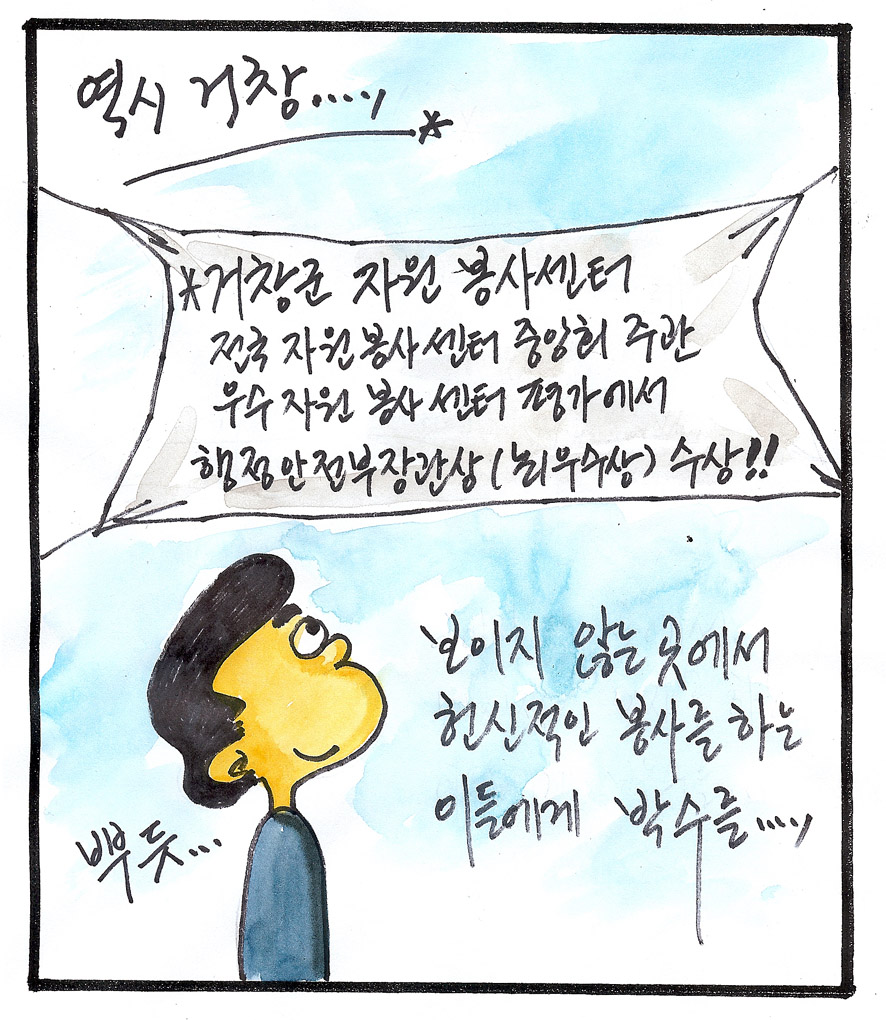 역시 거창.....,
*거창군 자원 봉사센터
전국 자원봉사센터 중앙회 주관
우수 자원 봉사 센터 평가에서
행정안전부장관상 (뇌우수상) 수상!!
보이지 않는 곳에서
헌신적인 봉사를 하는
이들에게 박수를....,
뿌듯...